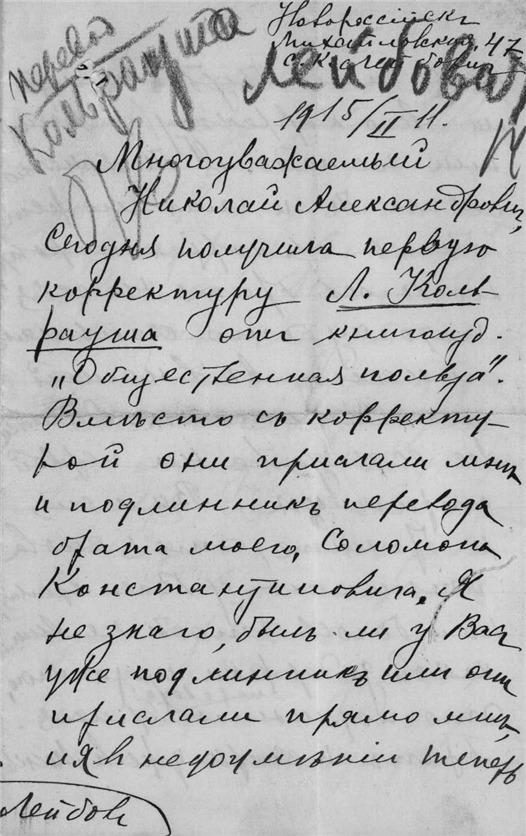 Новороссійскъ
Михайловская, 47
перевод
Кольрауша
Лейбович
1915/II 11.
Многоуважаемый
Николай Александрович,
Сегодня получила первую
корректуру Л. Коль
рауша отъ книгоизд.
„Общественная польза".
Вмѣсто съ корректу-
рой они прислали мнѣ
и подлинникъ перевода
брата моего, Соломона
Константиновича. Я
не знаю, былъ-ли у Вас
уже подлинникъ или они
прислали прямо мнѣ,
и я въ недоумѣніи теперь
Лейбов